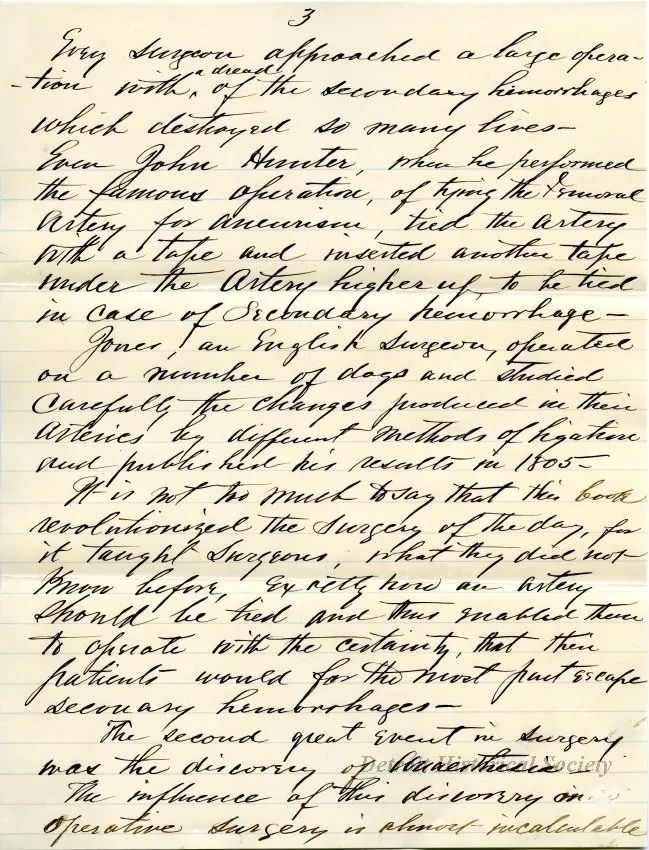 3
Every surgeon approached a large opera-
-tion with a dread of the secondary hemorrhages
which destroyed so many lives-
Even John Hunter, when he performed
the famous operation, of tying the Femoral
Artery for aneurism, tied the artery
with a tape and inserted another tape
under the Artery higher up, to be tied
in case of Secondary hemorrhage-
Jones, an English Surgeon, operated
on a number of dogs and studied
carefully the changes produced in their
Arteries by different methods of ligation
and published his results in 1805-
It is not too much to say that this book
revolutionized the surgery of the day, for
it taught Surgeons, what they did not
know before, Exactly how an artery
should be tied and thus enabled them
to operate with the certainty, that their
patients would for the most part escape
seconary hemorrhages-
The second great event in surgery
was the discovery of Anaesthesia
Detroit Historical Society
The influence of this discovery on
operative surgery is almost incalculable